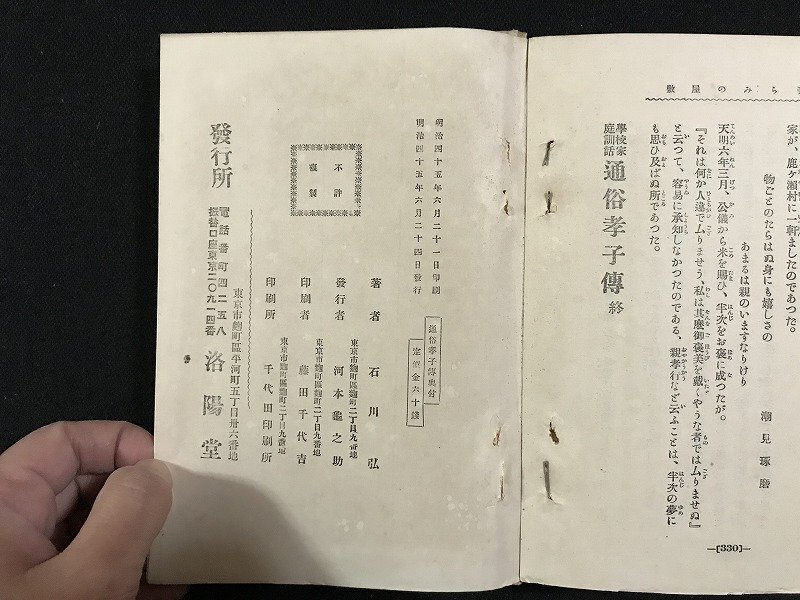 らみの屋敷
家が、鹿ケ瀬村に一軒ましたのであつた。
物ごとのたらはぬ身にも嬉しさの
あまるは親のいますなりけり
潮見琢磨
天明六年三月、公儀から米を賜ひ、半次をお褒に成つたが。
『それは何か人違で厶りませう、私は其麽御褒美を戴くやうな者では厶りませぬ』
と云つて、容易に承知しなかつたのである、親孝行など云ふことは、半次の夢に
も思ひ及ばぬ所であつた。
學校家庭訓話 通俗孝子傳 終
—[330]—
明治四十五年六月二十一日印刷
明治四十五年六月二十四日發行
不許
複製
通俗孝子傳奧付
定價金六十錢
著者 石川弘
東京市麴町區麴町二丁目九番地
發行者 河本龜之助
東京市麴町區麴町二丁目九番地
印刷者 藤田千代吉
東京市麴町區麴町二丁目九番地
印刷所 千代田印刷所
東京市麴町區平河町五丁目卅六番地
發行所 洛陽堂
電話番町四二五八
振替口座東京二〇九一四番